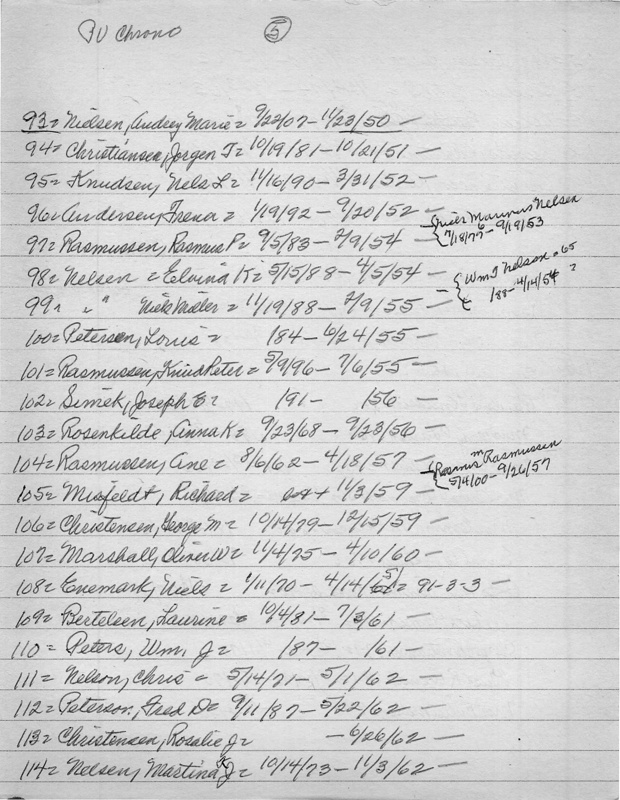 FU Chrono ⑤
93= Nielsen, Audrey Marie = 9/22/07 - 11/23/50 —
94= Christiansen, Jorgen T= 10/19/81 - 10/21/51 —
95= Knudsen, Nels L= 11/16/90 - 3/31/52 —
96= Andersen, Frena = 1/19/92 - 9/20/52 —
Mariners Nelsen
7/18/77 - 9/19/53
97= Rasmussen, Rasmus P= 9/5/83 - 2/9/54 —
98= Nelsen = Edvina K= 5/15/88 - 4/5/54 —
Wm J Nelson = 65
/88 - 4/14/54 ?
99= " " Niels Miller = 11/19/88 - 2/9/55 —
100= Petersen, Louis = /84 - 6/24/55 —
101= Rasmussen, Knud Peter = 5/9/96 - 7/6/55 —
102= Simek, Joseph E= /91 - /56 —
103= Rosenkilde, Anna K= 9/23/68 - 9/23/56 —
104= Rasmussen, Ane = 8/6/62 - 4/18/57 —
Rasmus m Rasmussen
5/4/00 - 9/26/57
105= Misfeldt, Richard = 11/3/59 —
106= Christensen, George M= 10/14/79 - 12/15/59 —
107= Marshall, Oliver W= 11/4/75 - 4/10/60 —
108= Enemark, Niels = 1/11/70 - 4/14/61 = 91-3-3 —
109= Bertelsen, Laurine = 10/4/81 - 7/3/61 —
110= Peters, Wm. J= /87 - /61 —
111= Nelson, Chris = 5/14/71 - 5/1/62 —
112= Peterson, Fred D= 9/11/87 - 5/22/62 —
113= Christensen, Rosalie J= - 6/26/62 —
114= Nelsen, Martina J= 10/14/73 - 11/3/62 —